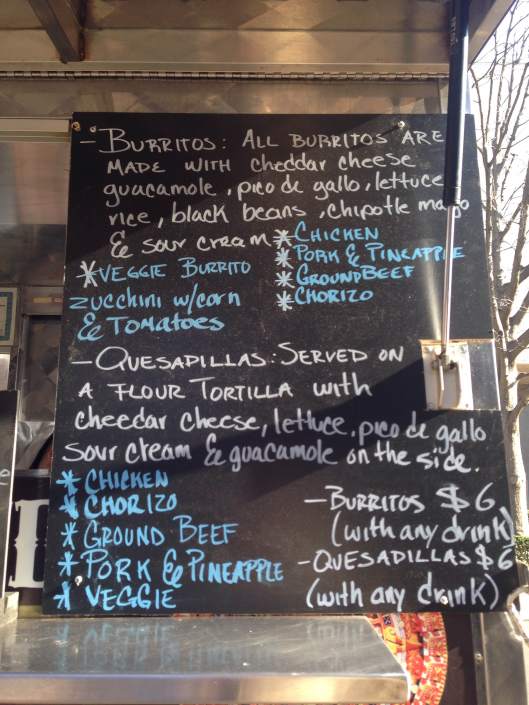 - BURRITOS: ALL BURRITOS ARE
MADE WITH cheddar cheese
guacamole, pico de gallo, lettuce
rice, black beans, chipotle mayo
& sour cream
* CHICKEN
* PORK & PINEAPPLE
* GROUND BEEF
* CHORIZO
* VEGGIE BURRITO
zucchini w/corn
& TOMATOES
- QUESADILLAS: SERVED ON
A FLOUR TORTILLA with
cheedar cheese, lettuce, pico de gallo
sour cream & guacamole on the side.
* CHICKEN
* CHORIZO
* GROUND BEEF
* PORK & PINEAPPLE
* VEGGIE
- BURRITOS $6
(with any drink)
- QUESADILLAS $6
(with any drink)